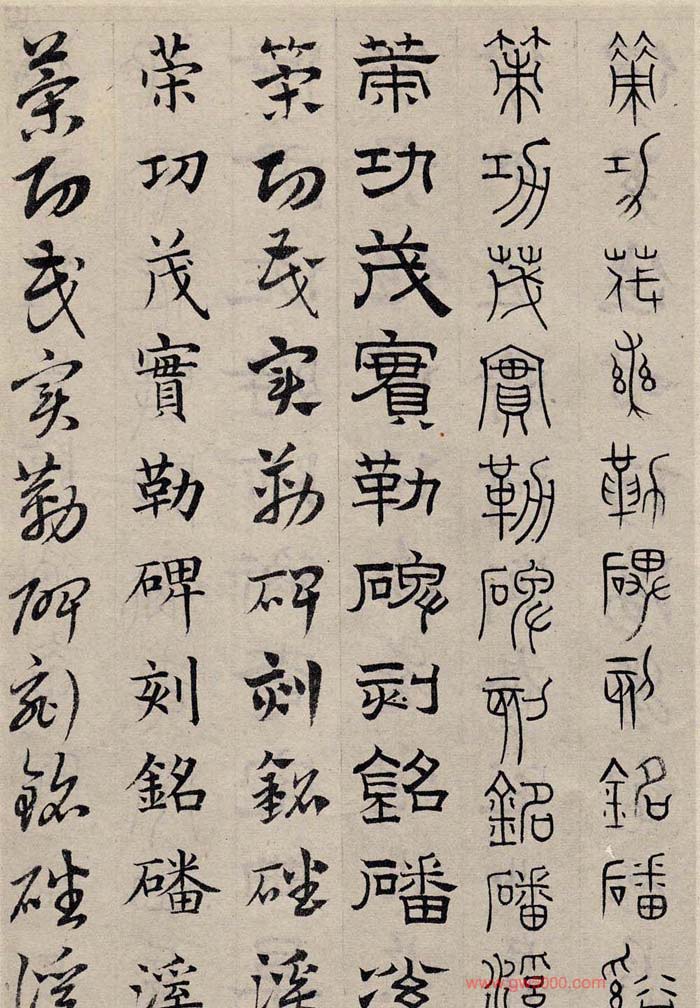 策功茂實勒碑刻銘磻谿
策功茂實勒碑刻銘磻溪
策功茂實勒碑刻銘磻
策功茂实勒碑刻銘磻溪
策功茂實勒碑刻銘磻溪
策功茂实勒碑刻銘磻溪